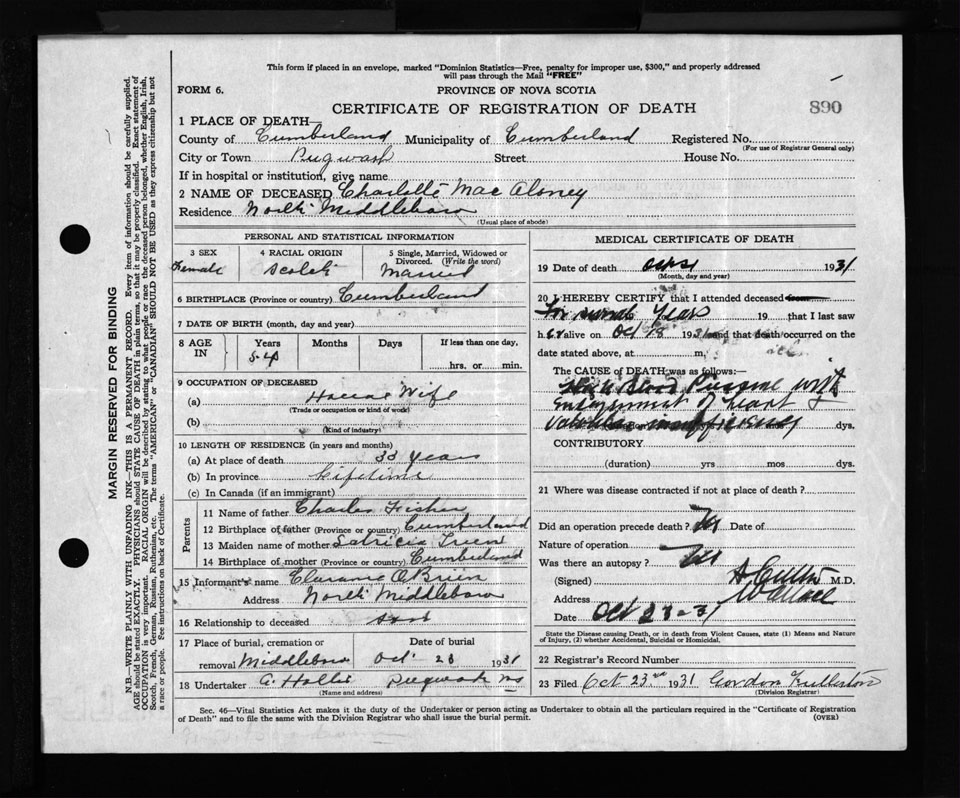 This form if placed in an envelope, marked "Dominion Statistics—Free, penalty for improper use, $300," and properly addressed
will pass through the Mail "FREE"
FORM 6.
PROVINCE OF NOVA SCOTIA
CERTIFICATE OF REGISTRATION OF DEATH
890
1 PLACE OF DEATH—
County of Cumberland Municipality of Cumberland Registered No.
(For use of Registrar General only)
City or Town Pugwash Street House No.
If in hospital or institution, give name
2 NAME OF DECEASED Charlotte Mac Aloney
Residence North Middleboro
(Usual place of abode)
PERSONAL AND STATISTICAL INFORMATION
3 SEX 4 RACIAL ORIGIN 5 Single, Married, Widowed or
Divorced. (Write the word)
Female Scotch Married
6 BIRTHPLACE (Province or country) Cumberland
7 DATE OF BIRTH (month, day and year)
8 AGE IN Years Months Days If less than one day,
54 hrs. or min.
9 OCCUPATION OF DECEASED
(a) House Wife
(Trade or occupation or kind of work)
(b)
(Kind of industry)
10 LENGTH OF RESIDENCE (in years and months)
(a) At place of death 33 years
(b) In province Lifetime
(c) In Canada (if an immigrant)
Parents
11 Name of father Charles Fisher
12 Birthplace of father (Province or country) Cumberland
13 Maiden name of mother
14 Birthplace of mother (Province or country) Cumberland
15 Informant's name Clarance O'Brien
Address North Middleboro
16 Relationship to deceased
17 Place of burial, cremation or Date of burial
removal Middleboro Oct 23 1931
18 Undertaker Pugwash NS
(Name and address)
MEDICAL CERTIFICATE OF DEATH
19 Date of death 1931
(Month, day and year)
20 I HEREBY CERTIFY that I attended deceased from
For several Years 19 that I last saw
h er alive on Oct and that death occurred on
date stated above, at m.
The CAUSE OF DEATH was as follows:—
High Blood Pressure with
Enlargement of Heart
insufficiency dys.
CONTRIBUTORY
(duration) yrs mos dys.
21 Where was disease contracted if not at place of death?
Did an operation precede death? No Date of
Nature of operation
Was there an autopsy? No
(Signed) M.D.
Address Wallace
Date Oct 23-31
State the Disease causing Death, or in death from Violent Causes, state (1) Means and Nature
of Injury, (2) whether Accidental, Suicidal or Homicidal.
22 Registrar's Record Number
23 Filed Oct 23rd 1931 Gordon Fullerton
(Division Registrar)
Sec. 46—Vital Statistics Act makes it the duty of the Undertaker or person acting as Undertaker to obtain all the particulars required in the "Certificate of Registration
of Death" and to file the same with the Division Registrar who shall issue the burial permit.
(OVER)
MARGIN RESERVED FOR BINDING
N.B—WRITE PLAINLY WITH UNFADING INK—THIS IS A PERMANENT RECORD. Every item of information should be carefully supplied.
AGE should be stated EXACTLY. PHYSICIANS should STATE CAUSE OF DEATH in plain terms, so that it may be properly classified. Exact statement of
OCCUPATION is very important. RACIAL ORIGIN will be described by stating to what people or race the deceased person belonged, whether English, Irish,
Scotch, French, German, Russian, Ruthenian, etc. The terms "AMERICAN" or "CANADIAN" SHOULD NOT BE USED as they express citizenship but not
a race or people. See instructions on back of Certificate.